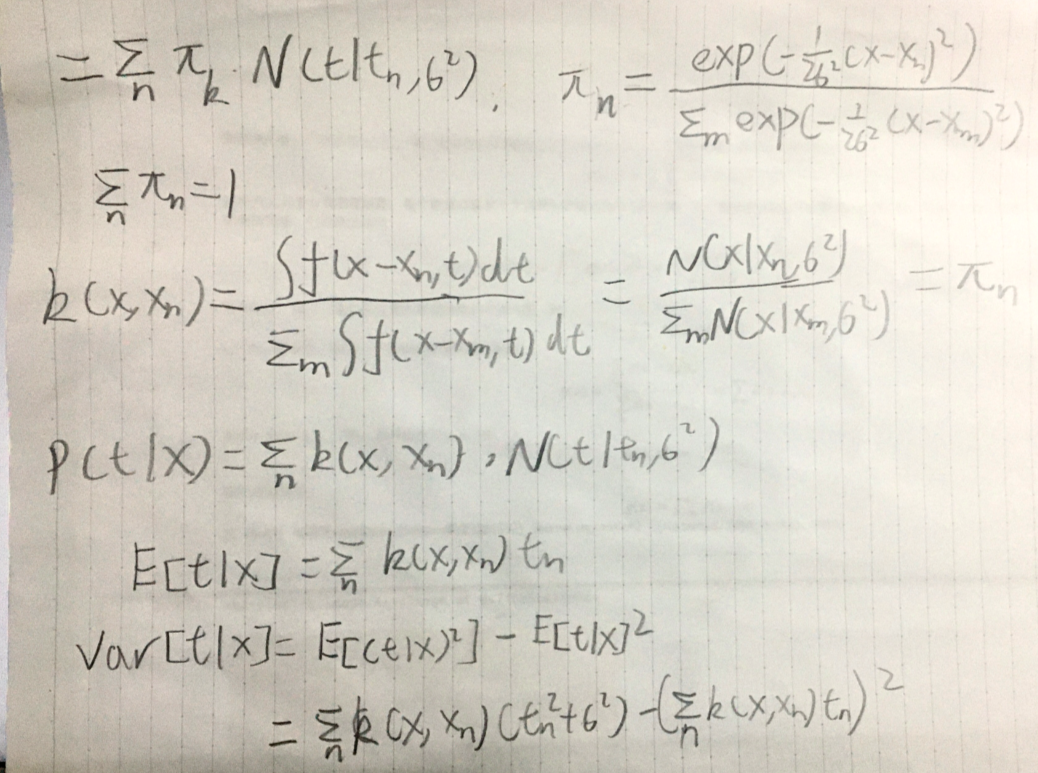 = Σ_n π_k · N(t|t_n, σ²). π_n = exp(-1/2σ² (x-x_n)²) / Σ_m exp(-1/2σ² (x-x_m)²)
Σ_n π_n = 1
k(x, x_n) = ∫f(x-x_n, t)dt / Σ_m ∫f(x-x_m, t) dt = N(x|x_n, σ²) / Σ_m N(x|x_m, σ²) = π_n
p(t|x) = Σ_n k(x, x_n) · N(t|t_n, σ²)
E[t|x] = Σ_n k(x, x_n) t_n
Var[t|x] = E[(t|x)²] - E[t|x]²
= Σ_n k(x, x_n) (t_n² + σ²) - (Σ_n k(x, x_n) t_n)²